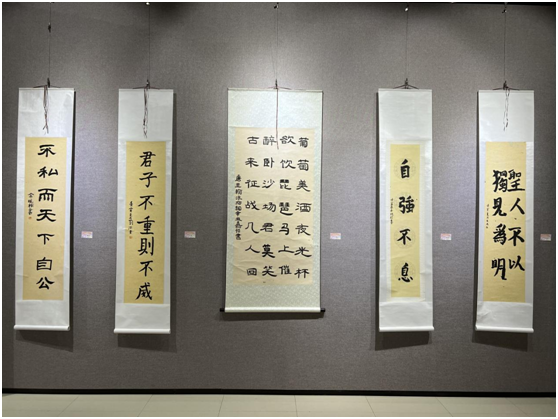 不私而天下自公
君子不重則不威
葡萄美酒夜光杯
欲饮琵琶马上催
醉卧沙场君莫笑
古来征战几人回
自強不息
聖人不以
獨見為明